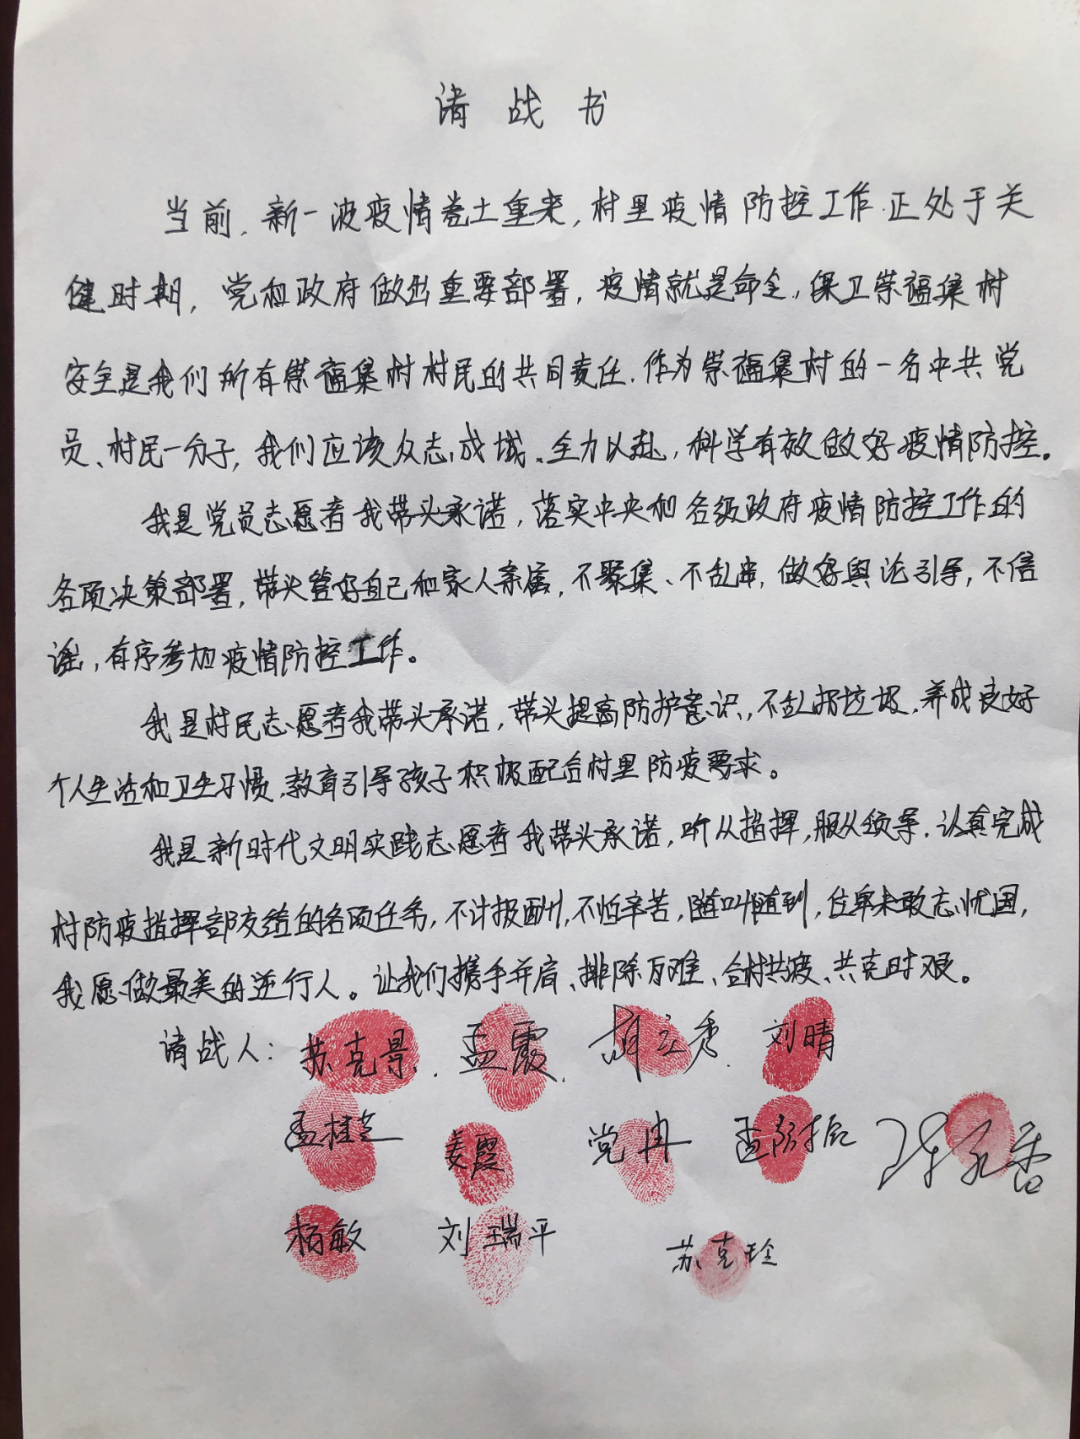 请战书
当前,新一波疫情卷土重来,村里疫情防控工作正处于关
健时期,党和政府做出重要部署,疫情就是命令,保卫崇福集村
安全是我们所有崇福集村村民的共同责任.作为崇福集村的一名中共党
员、村民一分子,我们应该众志成城、全力以赴,科学有效做好疫情防控。
我是党员志愿者我带头承诺,落实中央和各级政府疫情防控工作的
各项决策部署,带头管好自己和家人亲属,不聚集、不乱串,做好舆论引导,不信
谣,有序参加疫情防控工作。
我是村民志愿者我带头承诺,带头提高防护意识,不乱扔垃圾,养成良好
个人生活和卫生习惯,教育引导孩子积极配合村里防疫要求。
我是新时代文明实践志愿者我带头承诺,听从指挥,服从领导,认真完成
村防疫指挥部交给的各项任务,不计报酬,不怕辛苦,随叫随到,位卑未敢忘忧国,
我愿做最美的逆行人。让我们携手并肩、排除万难、合村共渡、共克时艰。
请战人:苏克景.孟霞.胡立秀.刘晴
孟桂芝 姜霞 党冉 孟 振 永香
杨敏 刘瑞平 苏克玲